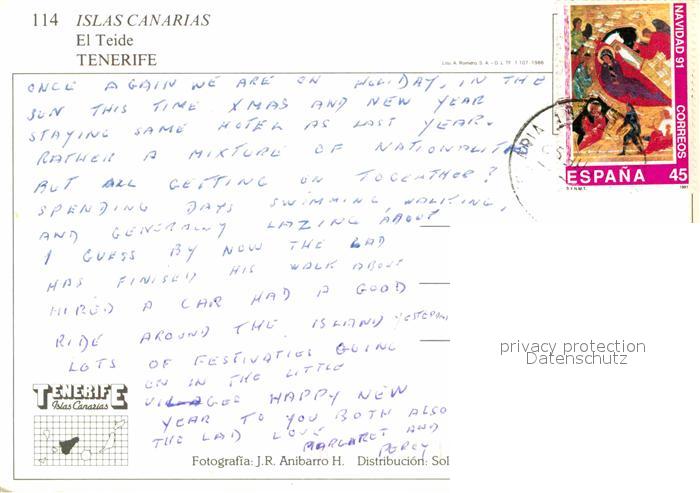 114 ISLAS CANARIAS
El Teide
TENERIFE
Lito. A. Romero, S. A. - D. L. TF. 1.107 - 1986
NAVIDAD 91
CORREOS
ESPAÑA 45
F.N.M.T. 1991
ONCE AGAIN WE ARE ON HOLIDAY, IN THE
SUN THIS TIME XMAS AND NEW YEAR
STAYING SAME HOTEL AS LAST YEAR.
RATHER A MIXTURE OF NATIONALIT
BUT ALL GETTING ON TOGEATHER?
SPENDING DAYS SWIMMING, WALKING,
AND GENERALLY LAZING ABOUT
I GUESS BY NOW THE LAD
HAS FINISED HIS WALK ABOUT
HIRED A CAR HAD A GOOD
RIDE AROUND THE ISLAND YESTERDAY
LOTS OF FESTIVATIES GOING
ON IN THE LITTLE
VILLAGES HAPPY NEW
YEAR TO YOU BOTH ALSO
THE LAD LOVE MARGARET AND
PERCY
privacy protection
Datenschutz
TENERIFE
Islas Canarias
Fotografía: J.R. Anibarro H. Distribución: Sol